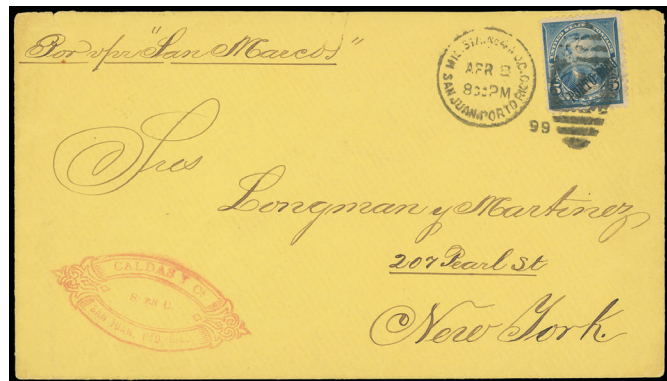 Por vpr "San Marcos"
MIL. STA. No 4 D.C.
APR
8 PM
SAN JUAN. PORTO RICO
99
5
Sres
Longman y Martinez
207 Pearl St
New York.
CALDAS Y Cª
S. EN C.
SAN JUAN, PTO. RICO